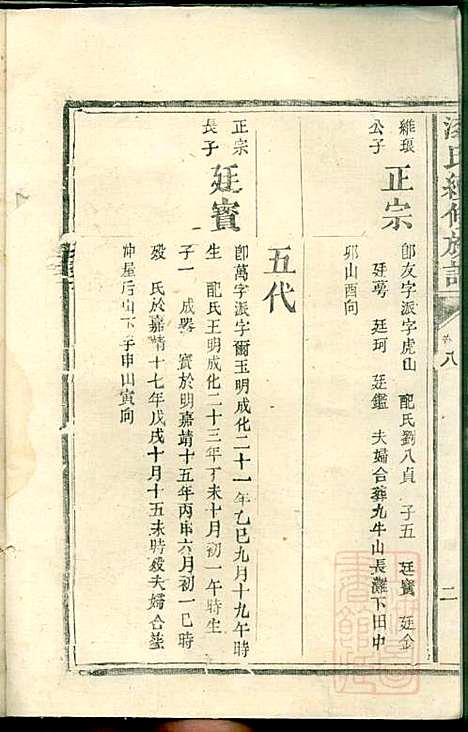 氏續修族譜
卷八
二
維琅
公子
正宗
即友字派字虎山 配氏劉八貞 子五 廷寶 廷金
廷蒡 廷珂 廷鑑 夫婦合葬九牛山長灘下田中
卯山酉向
五代
正宗
長子
廷寶
即萬字派字爾玉明成化二十一年乙巳九月十九午時
生 配氏王明成化二十三年丁未十月初一午時生
子一 成器 寶於明嘉靖十五年丙申六月初一巳時
歿 氏於嘉靖十七年戊戌十月十五未時歿夫婦合塋
神屋后山下 申山寅向